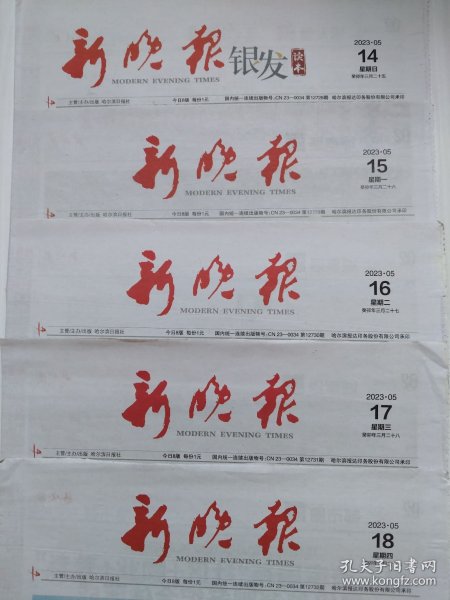 新晚报 银发 读本
MODERN EVENING TIMES
2023·05
14
星期日
癸卯年三月二十五
主管/主办/出版 哈尔滨日报社 今日8版 每份1元 国内统一连续出版物号:CN 23—0034 第12728期 哈尔滨报达印务股份有限公司承印
新晚报
MODERN EVENING TIMES
2023·05
15
星期一
癸卯年三月二十六
主管/主办/出版 哈尔滨日报社 今日8版 每份1元 国内统一连续出版物号:CN 23—0034 第12729期 哈尔滨报达印务股份有限公司承印
新晚报
MODERN EVENING TIMES
2023·05
16
星期二
癸卯年三月二十七
主管/主办/出版 哈尔滨日报社 今日8版 每份1元 国内统一连续出版物号:CN 23—0034 第12730期 哈尔滨报达印务股份有限公司承印
新晚报
MODERN EVENING TIMES
2023·05
17
星期三
癸卯年三月二十八
主管/主办/出版 哈尔滨日报社 今日8版 每份1元 国内统一连续出版物号:CN 23—0034 第12731期 哈尔滨报达印务股份有限公司承印
新晚报
MODERN EVENING TIMES
2023·05
18
星期四
主管/主办/出版 哈尔滨日报社 今日8版 每份1元 国内统一连续出版物号:CN 23—0034 第12732期 哈尔滨报达印务股份有限公司承印
孔夫子旧书网
www.kongfz.com